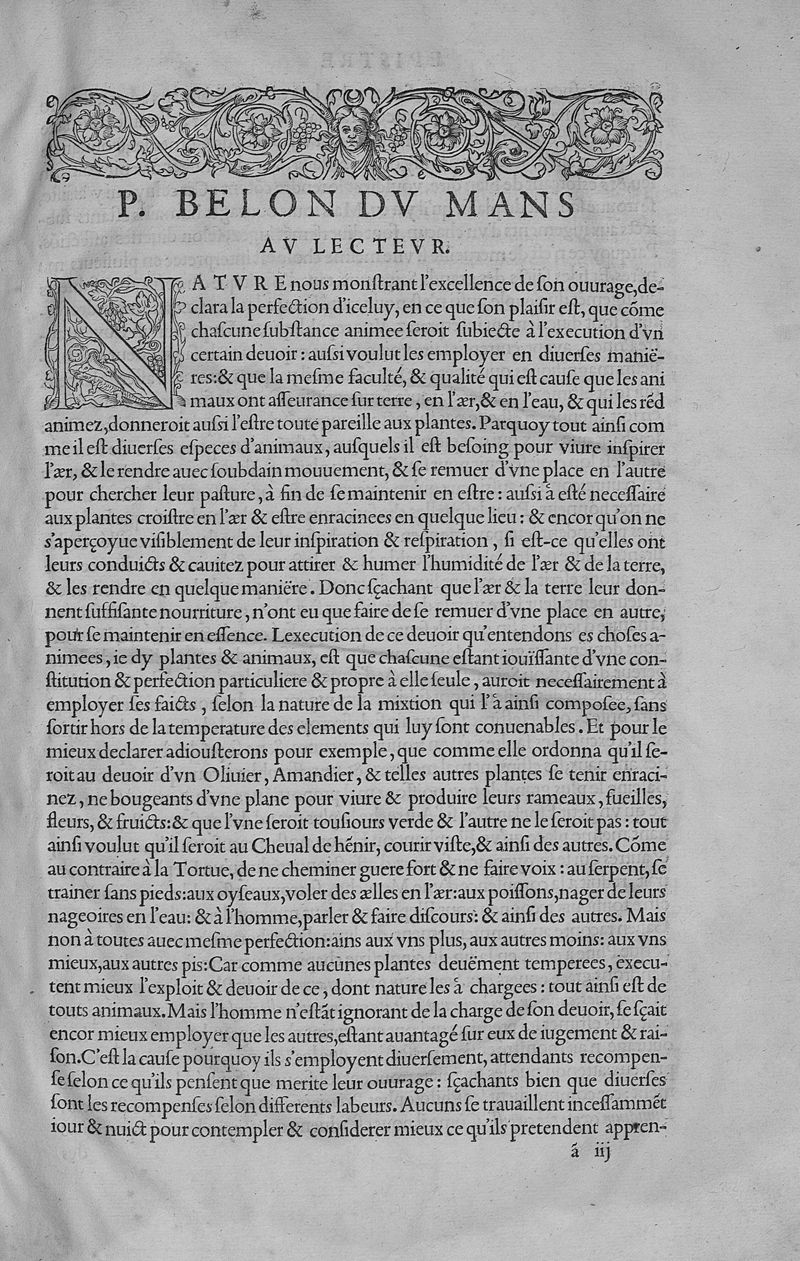 P. BELON DV MANS
AV LECTEVR.
NATVRE nous monſtrant l'excellence de ſon ouurage, de-
clara la perfection d'iceluy, en ce que ſon plaiſir eſt, que cõme
chaſcune ſubſtance animee ſeroit ſubiecte à l'execution d'vn
certain deuoir : auſsi voulut les employer en diuerſes manië-
res:& que la meſme faculté, & qualité qui eſt cauſe que les ani
maux ont aſſeurance ſur terre, en l'ær,& en l'eau, & qui les rẽd
animez,donneroit auſsi l'eſtre toute pareille aux plantes. Parquoy tout ainſi com
me il eſt diuerſes eſpeces d'animaux, auſquels il eſt beſoing pour viure inſpirer
l'ær, & le rendre auec ſoubdain mouuement, & ſe remuer d'vne place en l'autre
pour chercher leur paſture, à fin de ſe maintenir en eſtre : auſsi à eſté neceſſaire
aux plantes croiſtre en l'ær & eſtre enracinees en quelque lieu : & encor qu'on ne
s'aperçoyue viſiblement de leur inſpiration & reſpiration, ſi eſt-ce qu'elles ont
leurs conduicts & cauitez pour attirer & humer l'humidité de l'ær & de la terre,
& les rendre en quelque manière. Donc ſçachant que l'ær & la terre leur don-
nent ſuffiſante nourriture, n'ont eu que faire de ſe remuer d'vne place en autre,
pour ſe maintenir en eſſence. Lexecution de ce deuoir qu'entendons es choſes a-
nimees, ie dy plantes & animaux, eſt que chaſcune eſtant iouïſſante d'vne con-
ſtitution & perfection particuliere & propre à elle ſeule, auroit neceſſairement à
employer ſes faicts, ſelon la nature de la mixtion qui l'à ainſi compoſee, ſans
ſortir hors de la temperature des elements qui luy ſont conuenables. Et pour le
mieux declarer adiouſterons pour exemple, que comme elle ordonna qu'il ſe-
roit au deuoir d'vn Oliuier, Amandier, & telles autres plantes ſe tenir enraci-
nez, ne bougeants d'vne plane pour viure & produire leurs rameaux, fueilles,
fleurs, & fruicts:& que l'vne ſeroit touſiours verde & l'autre ne le ſeroit pas : tout
ainſi voulut qu'il ſeroit au Cheual de hẽnir, courir viſte,& ainſi des autres. Cõme
au contraire à la Tortue, de ne cheminer guere fort & ne faire voix : au ſerpent, ſe
trainer ſans pieds:aux oyſeaux,voler des ælles en l'ær:aux poiſſons,nager de leurs
nageoires en l'eau: & à l'homme,parler & faire diſcours: & ainſi des autres. Mais
non à toutes auec meſme perfection:ains aux vns plus, aux autres moins: aux vns
mieux,aux autres pis:Car comme aucunes plantes deuëment temperees, execu-
tent mieux l'exploit & deuoir de ce, dont nature les à chargees : tout ainſi eſt de
touts animaux. Mais l'homme n'eſtãt ignorant de la charge de ſon deuoir, ſe ſçait
encor mieux employer que les autres,eſtant auantagé ſur eux de iugement & rai-
ſon.C'eſt la cauſe pourquoy ils s'employent diuerſement, attendants recompen-
ſe ſelon ce qu'ils penſent que merite leur ouurage : ſçachants bien que diuerſes
ſont les recompenſes ſelon differents labeurs. Aucuns ſe trauaillent inceſſammẽt
iour & nuict pour contempler & conſiderer mieux ce qu'ils pretendent appren-
ã iij